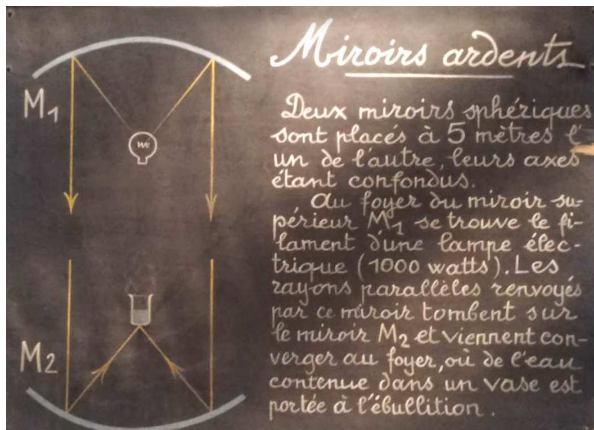 Miroirs ardents
M1
Deux miroirs sphériques
sont placés à 5 mètres l'
un de l'autre, leurs axes
étant confondus.
Au foyer du miroir su-
périeur M1 se trouve le fi-
lament d'une lampe élec-
trique (1000 watts). Les
rayons parallèles renvoyés
par ce miroir tombent sur
le miroir M2 et viennent con-
verger au foyer, où de l'eau
contenue dans un vase est
portée à l'ébullition.
M2